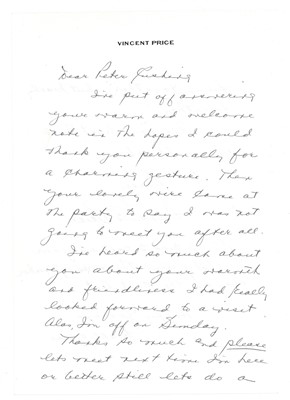 VINCENT PRICE
Dear Peter Cushing
I've put off answering
your warm and welcome
note in the hopes I could
thank you personally for
a charming gesture. Then
your lovely wire came at
the party to say I was not
going to meet you after all.
I've heard so much about
you about your warmth
and friendliness I had really
looked forward to a visit
Alas, I'm off on Sunday.
Thanks so much and please
lets meet next time I'm here
or better still lets do a